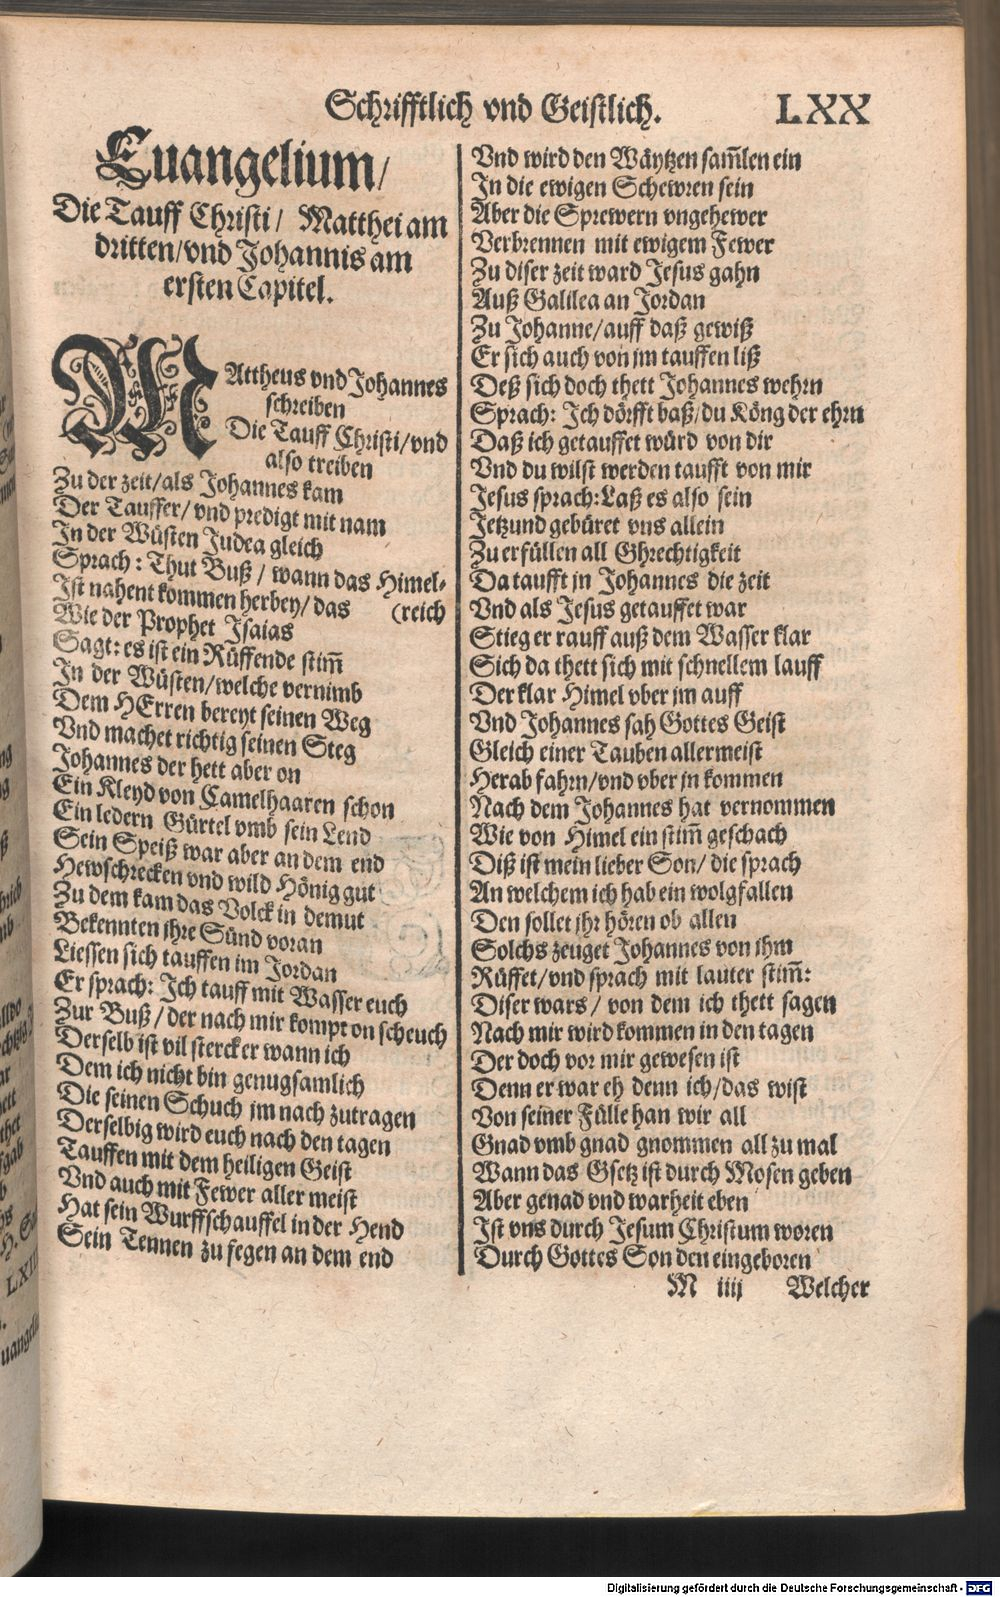 Schrifftlich vnd Geistlich. LXX
Euangelium/
Die Tauff Christi/ Matthei am
dritten/vnd Johannis am
ersten Capitel.
MAttheus vnd Johannes
schreiben
Die Tauff Christi/vnd
also treiben
Zu der zeit/als Johannes kam
Der Tauffer/ vnd predigt mit nam
In der Wüsten Judea gleich
Sprach: Thut Buß/ wann das Himel-
Ist nahent kommen herbey/das (reich
Wie der Prophet Isaias
Sagt: es ist ein Rüffende stim̃
In der Wüsten/welche vernimb
Dem HErren bereyt seinen Weg
Vnd machet richtig seinen Steg
Johannes der hett aber on
Ein Kleyd von Camelhaaren schon
Ein ledern Gürtel vmb sein Lend
Sein Speiß war aber an dem end
Hewschrecken vnd wild Hönig gut
Zu dem kam das Volck in demut
Bekennten jhre Sünd voran
Liessen sich tauffen im Jordan
Er sprach: Ich tauff mit Wasser euch
Zur Buß/der nach mir kompt on scheuch
Derselb ist vil stercker wann ich
Dem ich nicht bin genugsamlich
Die seinen Schuch jm nach zutragen
Derselbig wird euch nach den tagen
Tauffen mit dem heiligen Geist
Vnd auch mit Fewer aller meist
Hat sein Wurffschauffel in der Hend
Sein Tennen zu fegen an dem end
Vnd wird den Wäytzen sam̃len ein
In die ewigen Schewren sein
Aber die Sprewern vngehewer
Verbrennen mit ewigem Fewer
Zu diser zeit ward Jesus gahn
Auß Galilea an Jordan
Zu Johanne/auff daß gewiß
Er sich auch von jm tauffen liß
Deß sich doch thett Johannes wehrn
Sprach: Ich dörfft baß/du Köng der ehrn
Daß ich getauffet würd von dir
Vnd du wilst werden taufft von mir
Jesus sprach:Laß es also sein
Jetzund gebüret vns allein
Zu erfüllen all Ghrechtigkeit
Da taufft jn Johannes die zeit
Vnd als Jesus getauffet war
Stieg er rauff auß dem Wasser klar
Sich da thett sich mit schnellem lauff
Der klar Himel vber jm auff
Vnd Johannes sah Gottes Geist
Gleich einer Tauben allermeist
Herab fahrn/vnd vber jn kommen
Nach dem Johannes hat vernommen
Wie von Himel ein stim̃ geschach
Diß ist mein lieber Son/ die sprach
An welchem ich hab ein wolgfallen
Den sollet jhr hören ob allen
Solchs zeuget Johannes von jhm
Rüffet/vnd sprach mit lauter stim̃:
Diser wars/ von dem ich thett sagen
Nach mir wird kommen in den tagen
Der doch vor mir gewesen ist
Denn er war eh denn ich/das wist
Von seiner Fülle han wir all
Gnad vmb gnad gnommen all zu mal
Wann das Gsetz ist durch Mosen geben
Aber genad vnd warheit eben
Ist vns durch Jesum Christum woren
Durch Gottes Son den eingeboren
M iiij Welcher
Digitalisierung gefördert durch die Deutsche Forschungsgemeinschaft - DFG